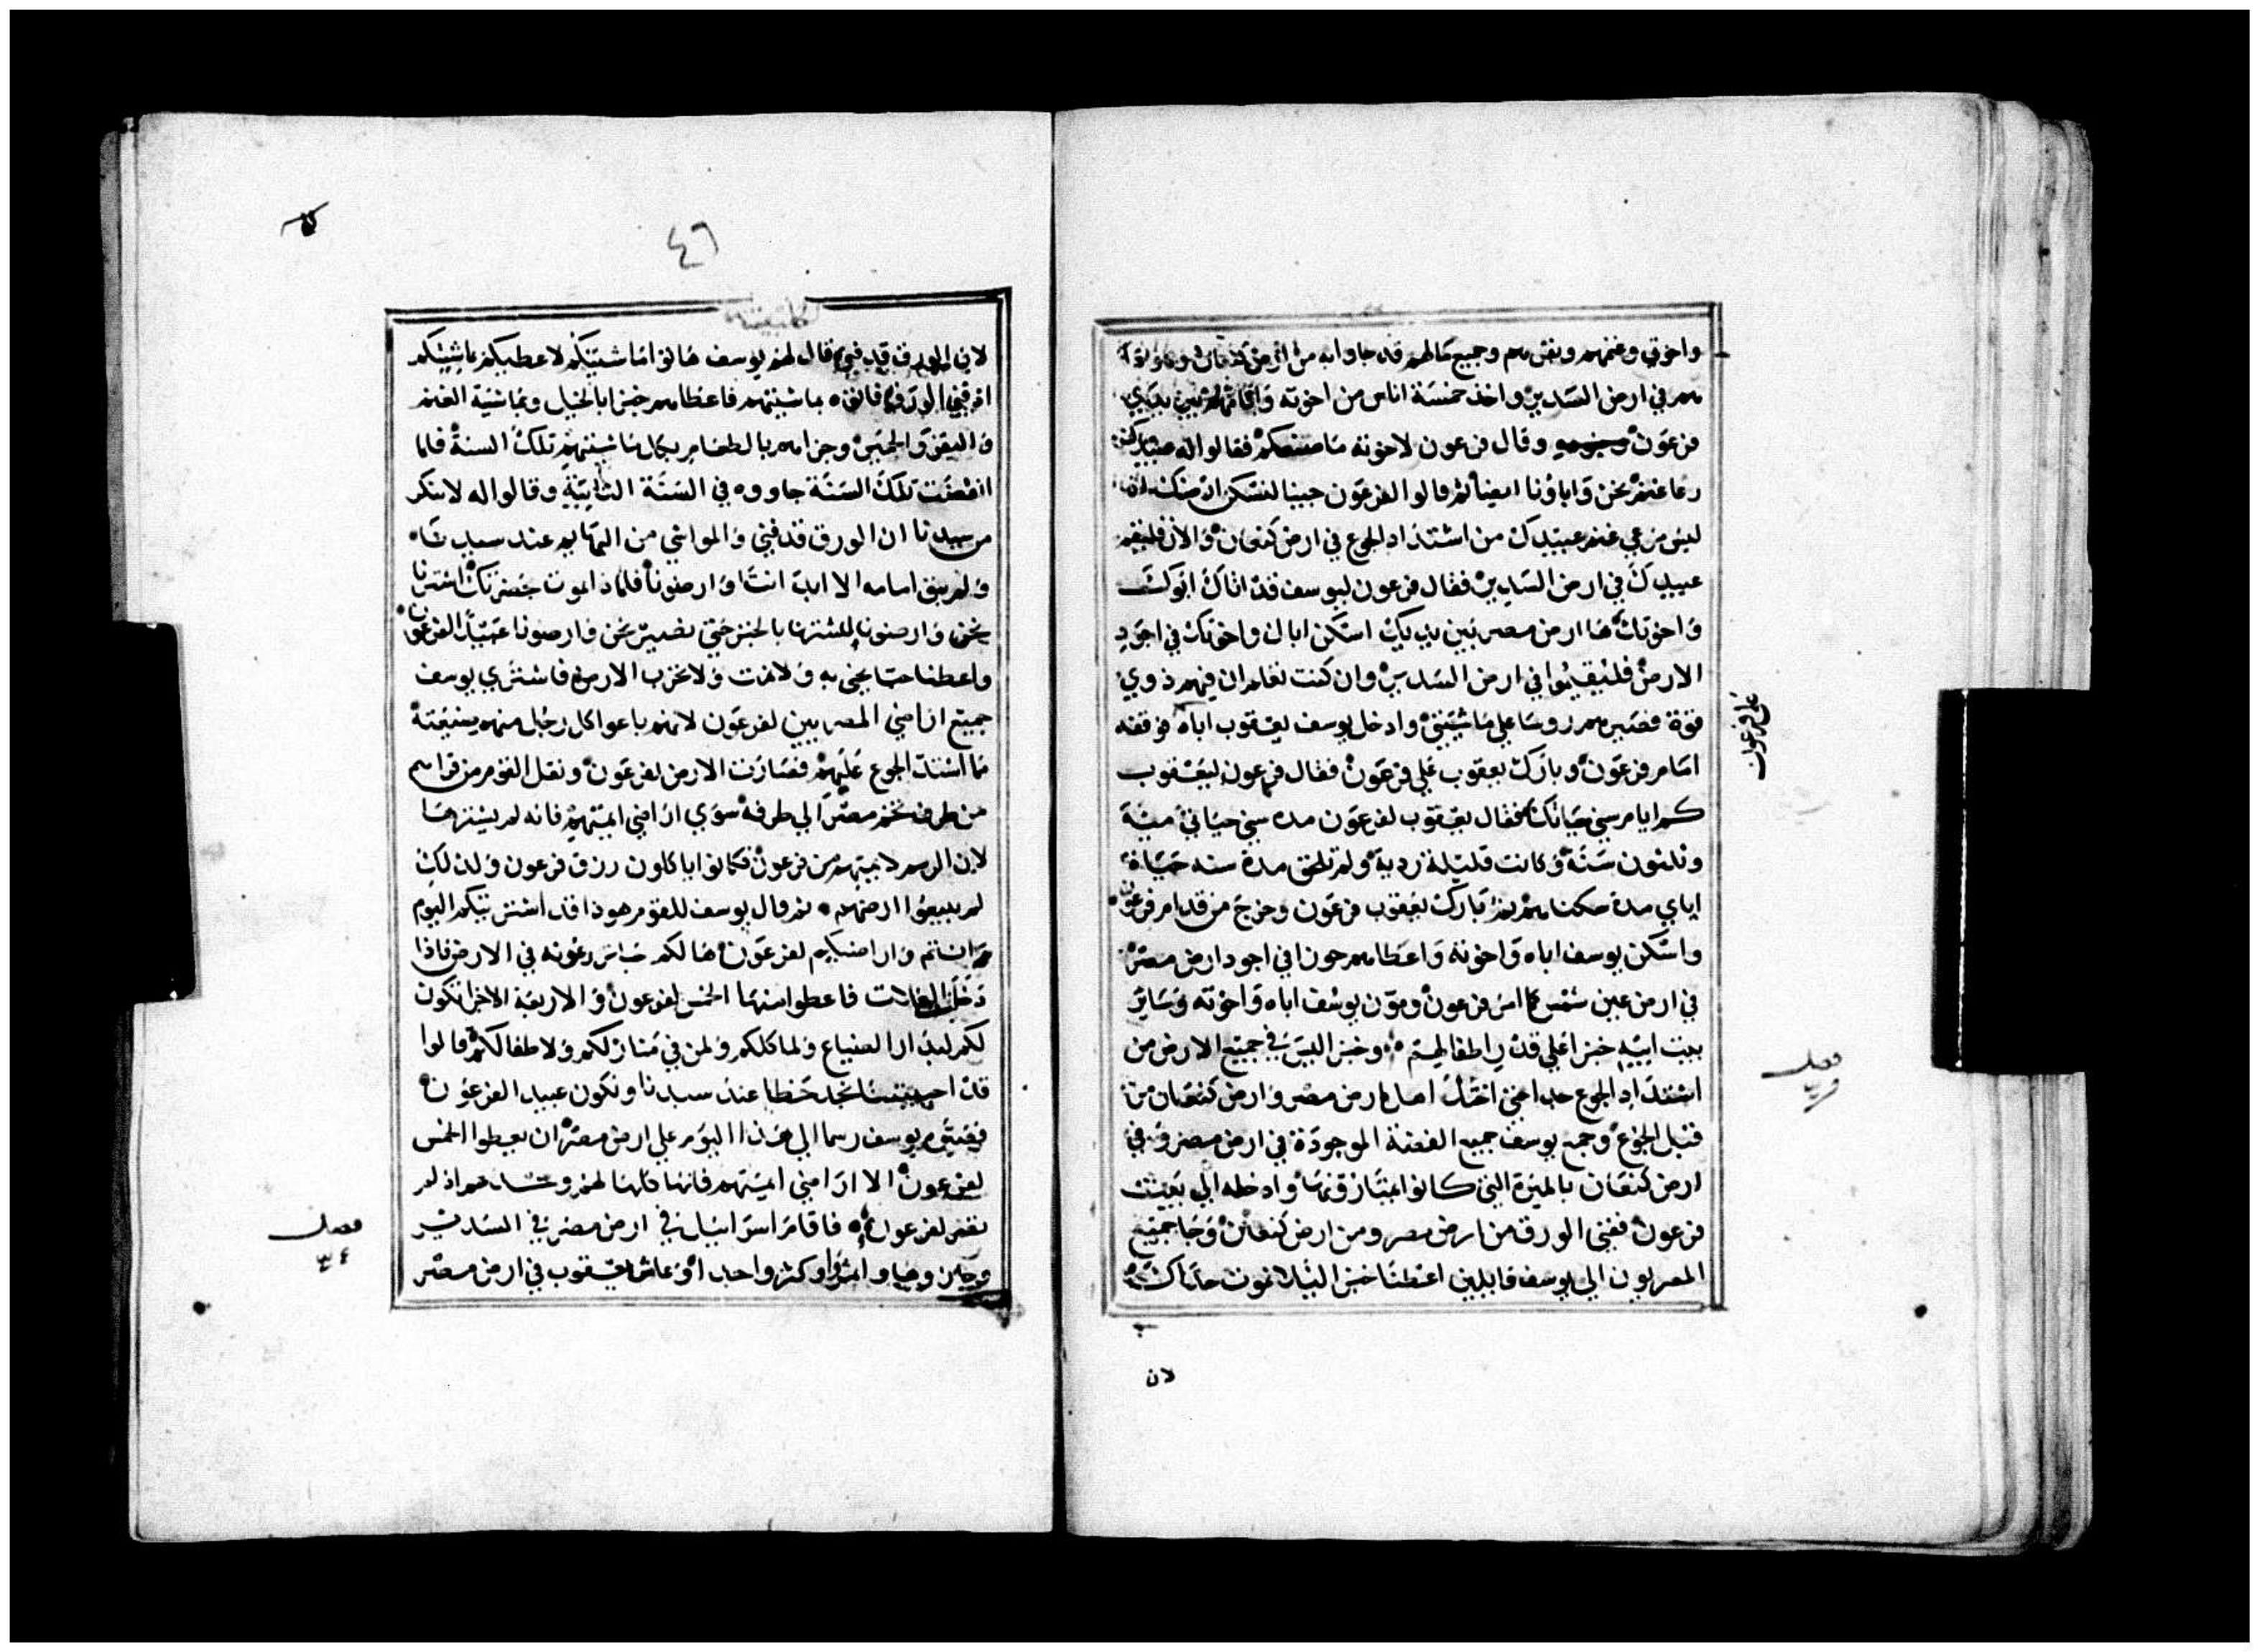 واخوتي وغنمهم وبقرهم وجميع مالهم قد جاوا به من ارض كنعان وهوذا
هم في ارض السدير واخذ خمسة اناس من اخوته واقامهم بين يدي
فرعون وقال فرعون لاخوته ما صنعتكم فقالوا له عبيدك
رعا غنم نحن واباونا ايضا ثم قالوا لفرعون جينا لنسكن ارضك اذ
ليس مرعي غنم عبيدك من اشتداد الجوع في ارض كنعان والان فليقم
عبيدك في ارض السدير فقال فرعون ليوسف قد اتاك ابوك
واخوتك ها ارض مصر بين يديك اسكن اباك واخوتك في اجود
الارض فليقيموا في ارض السدير وان كنت تعلم ان فيهم ذوي
قوة فصيرهم روسا علي ماشيتي وادخل يوسف يعقوب اباه فوقفه
امام فرعون وبارك يعقوب علي فرعون فقال فرعون ليعقوب
كم ايام سني حياتك فقال يعقوب لفرعون مدة سني حياتي مية
وثلثون سنة وكانت قليلة ردية ولم تلحق مدة سنه حياة
اباي مدة سكناهم ثم بارك يعقوب فرعون وخرج من قدام فرعون
واسكن يوسف اباه واخوته واعطاهم حوزا في اجود ارض مصر
في ارض عين شمس كما امر فرعون ومون يوسف اباه واخوته وساير
بيت ابيه خبزا علي قدر اطفالهم وخبز ليس في جميع الارض من
اشتداد الجوع جدا حتي اهل ارض مصر وارض كنعان من
قبل الجوع وجمع يوسف جميع الفضة الموجودة في ارض مصر وفي
ارض كنعان بالميرة التي كانوا يمتازونها وادخله الي بيت
فرعون ففني الورق من ارض مصر ومن ارض كنعان وجا جميع
المصريون الي يوسف قايلين اعطنا خبز اليلا نموت حذاك
لان
علي فرعون
فصل
٤٦
لان الورق قد فني قال لهم يوسف هاتوا ماشيتكم لاعطيكم بماشيتكم
اذ فني الورق فاتوه بماشيتهم فاعطاهم خبزا بالخيل وبماشية الغنم
والبقر والحمير وجزاهم بالطعام بكل ماشيتهم تلك السنة فلما
انقضت تلك السنة جاووه في السنة الثانية وقالوا له لا ننكر
من سيدنا ان الورق قد فني والمواشي من البهايم عند سيدناه
ولم يبق امامه الا ابداننا وارضونا فلماذا نموت بحضرتك اشترنا
نحن وارضونا بالخبز حتي نصير نحن وارضونا عبيدا لفرعون
واعطنا حبا نحيي به ولا نمت ولا تخرب الارض فاشتري يوسف
جميع اراضي المصريين لفرعون لانهم باعوا كل رجل منهم ضيعته
لما اشتد الجوع عليهم فصارت الارض لفرعون ونقل القوم من قراهم
من طرف تخم مصر الي طرفه سوي اراضي ايمتهم فانه لم يشترها
لان الرسم لايمتهم من فرعون فكانوا ياكلون رزق فرعون ولذلك
لم يبيعوا ارضهم ثم قال يوسف للقوم هوذا قد اشتريتكم اليوم
انتم واراضيكم لفرعون ها لكم حبا تزرعونه في الارض فاذا
دخلت الغلات فاعطوا منها الخمس لفرعون والاربعة الاخر تكون
لكم لبذار الضياع ولماكلكم ولمن في منازلكم ولاطفالكم قالوا
قد احييتنا نجد حظا عند سيدنا ونكون عبيدا لفرعون
فصيره يوسف رسما الي هذا اليوم علي ارض مصر ان يعطوا الخمس
لفرعون الا اراضي ايمتهم فانها كلها لهم وحدهم اذ لم
تصر لفرعون فاقام اسراييل في ارض مصر في السدير
وحازوها واثمروا وكثروا جدا وعاش يعقوب في ارض مصر
فصل
٣٤